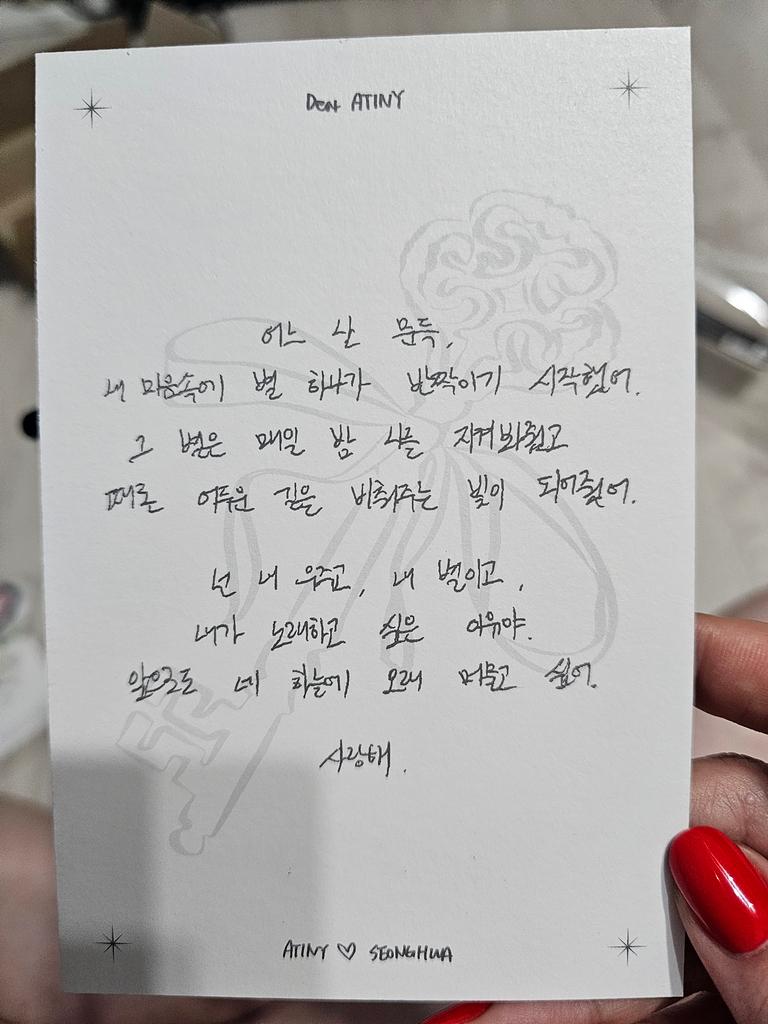 Dear ATINY
어느 날 문득,
내 마음속에 별 하나가 반짝이기 시작했어.
그 별은 매일 밤 나를 지켜봐줬고
때로 어두운 길을 비춰주는 빛이 되어줬어.
넌 내 우주고, 내 별이고,
내가 노래하고 싶은 이유야.
앞으로도 네 하늘에 오래 머물고 싶어.
사랑해.
ATINY ♡ SEONGHWA